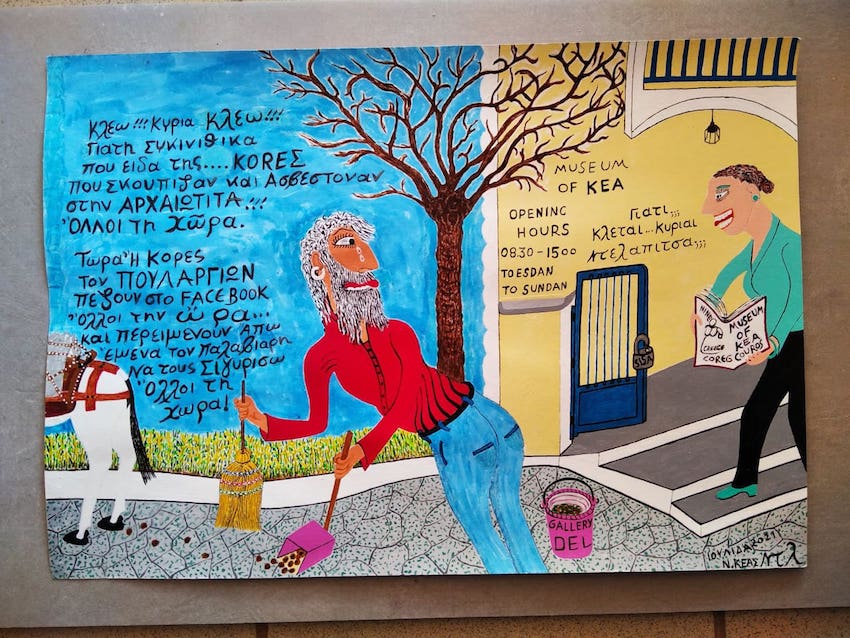 Κλεω!!! Κυρια Κλεω!!!
Γιατη Συκινιθικα
που ειδα της.... ΚΟRΕΣ
που Σκουπιζαν και Ασβεστοναν
στην ΑΡΧΑΙΩΤΙΤΑ!!!
Όλλοι τη χωρα.
Τωρα Ἡ Κορες
Τον ΠΟΥΛΑΡΓΙΩΝ
πεζουν στο FACEBOOK
Όλλοι την ω ρα...
και περειμενουν Απω
Έμενα τον παλαβιαρη
Να τους Σιγυρισω
Όλλοι τη
χωρα!
MUSEUM
OF KEA
OPENING
HOURS
08.30-1500
TOESDAN
TO SUNDAN
Γιατι,,,
Κλεται... Κυριαι
Ντελαπιτσα,,,
MUSEUM
OF
KEA
COUROS
GREECE
COREG
GALLERY
DEL
ΙΟΥΛΙΔΑ 2021
Ν. ΚΕΑΣ ντλ